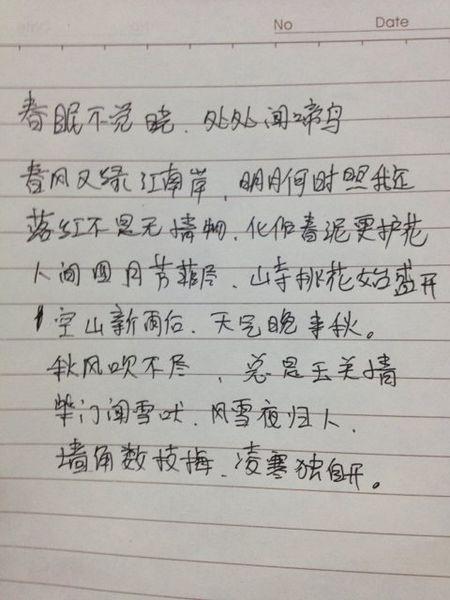 No Date
春眠不觉晓．处处闻啼鸟
春风又绿江南岸，明月何时照我还
落红不是无情物．化作春泥更护花
人间四月芳菲尽．山寺桃花始盛开
空山新雨后．天气晚来秋。
秋风吹不尽，总是玉关情
柴门闻雪吠．风雪夜归人．
墙角数枝梅．凌寒独自开。